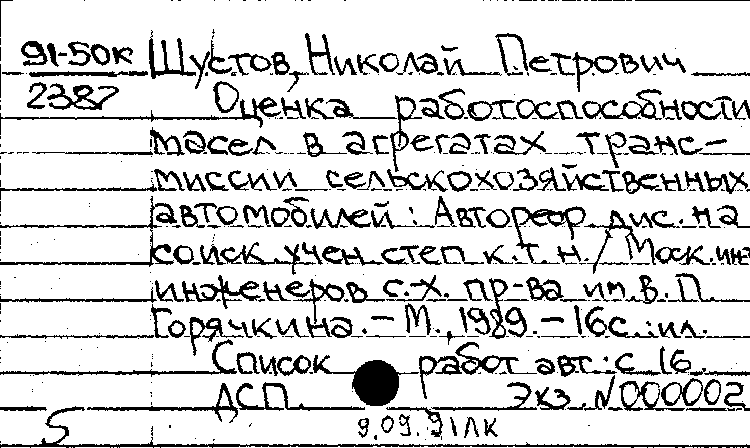 91-50К Шустов, Николай Петрович
2387 Оценка работоспособности
масел в агрегатах транс-
миссии сельскохозяйственных
автомобилей : Автореф. дис. на
соиск. учен. степ к.т.н. / Моск. инт
инженеров с.-х. пр-ва им. В. П.
Горячкина. - М., 1989. - 16с. : ил.
Список работ авт.: с 16.
ДСП. Экз. N000002
5 9.09.91 ЛК